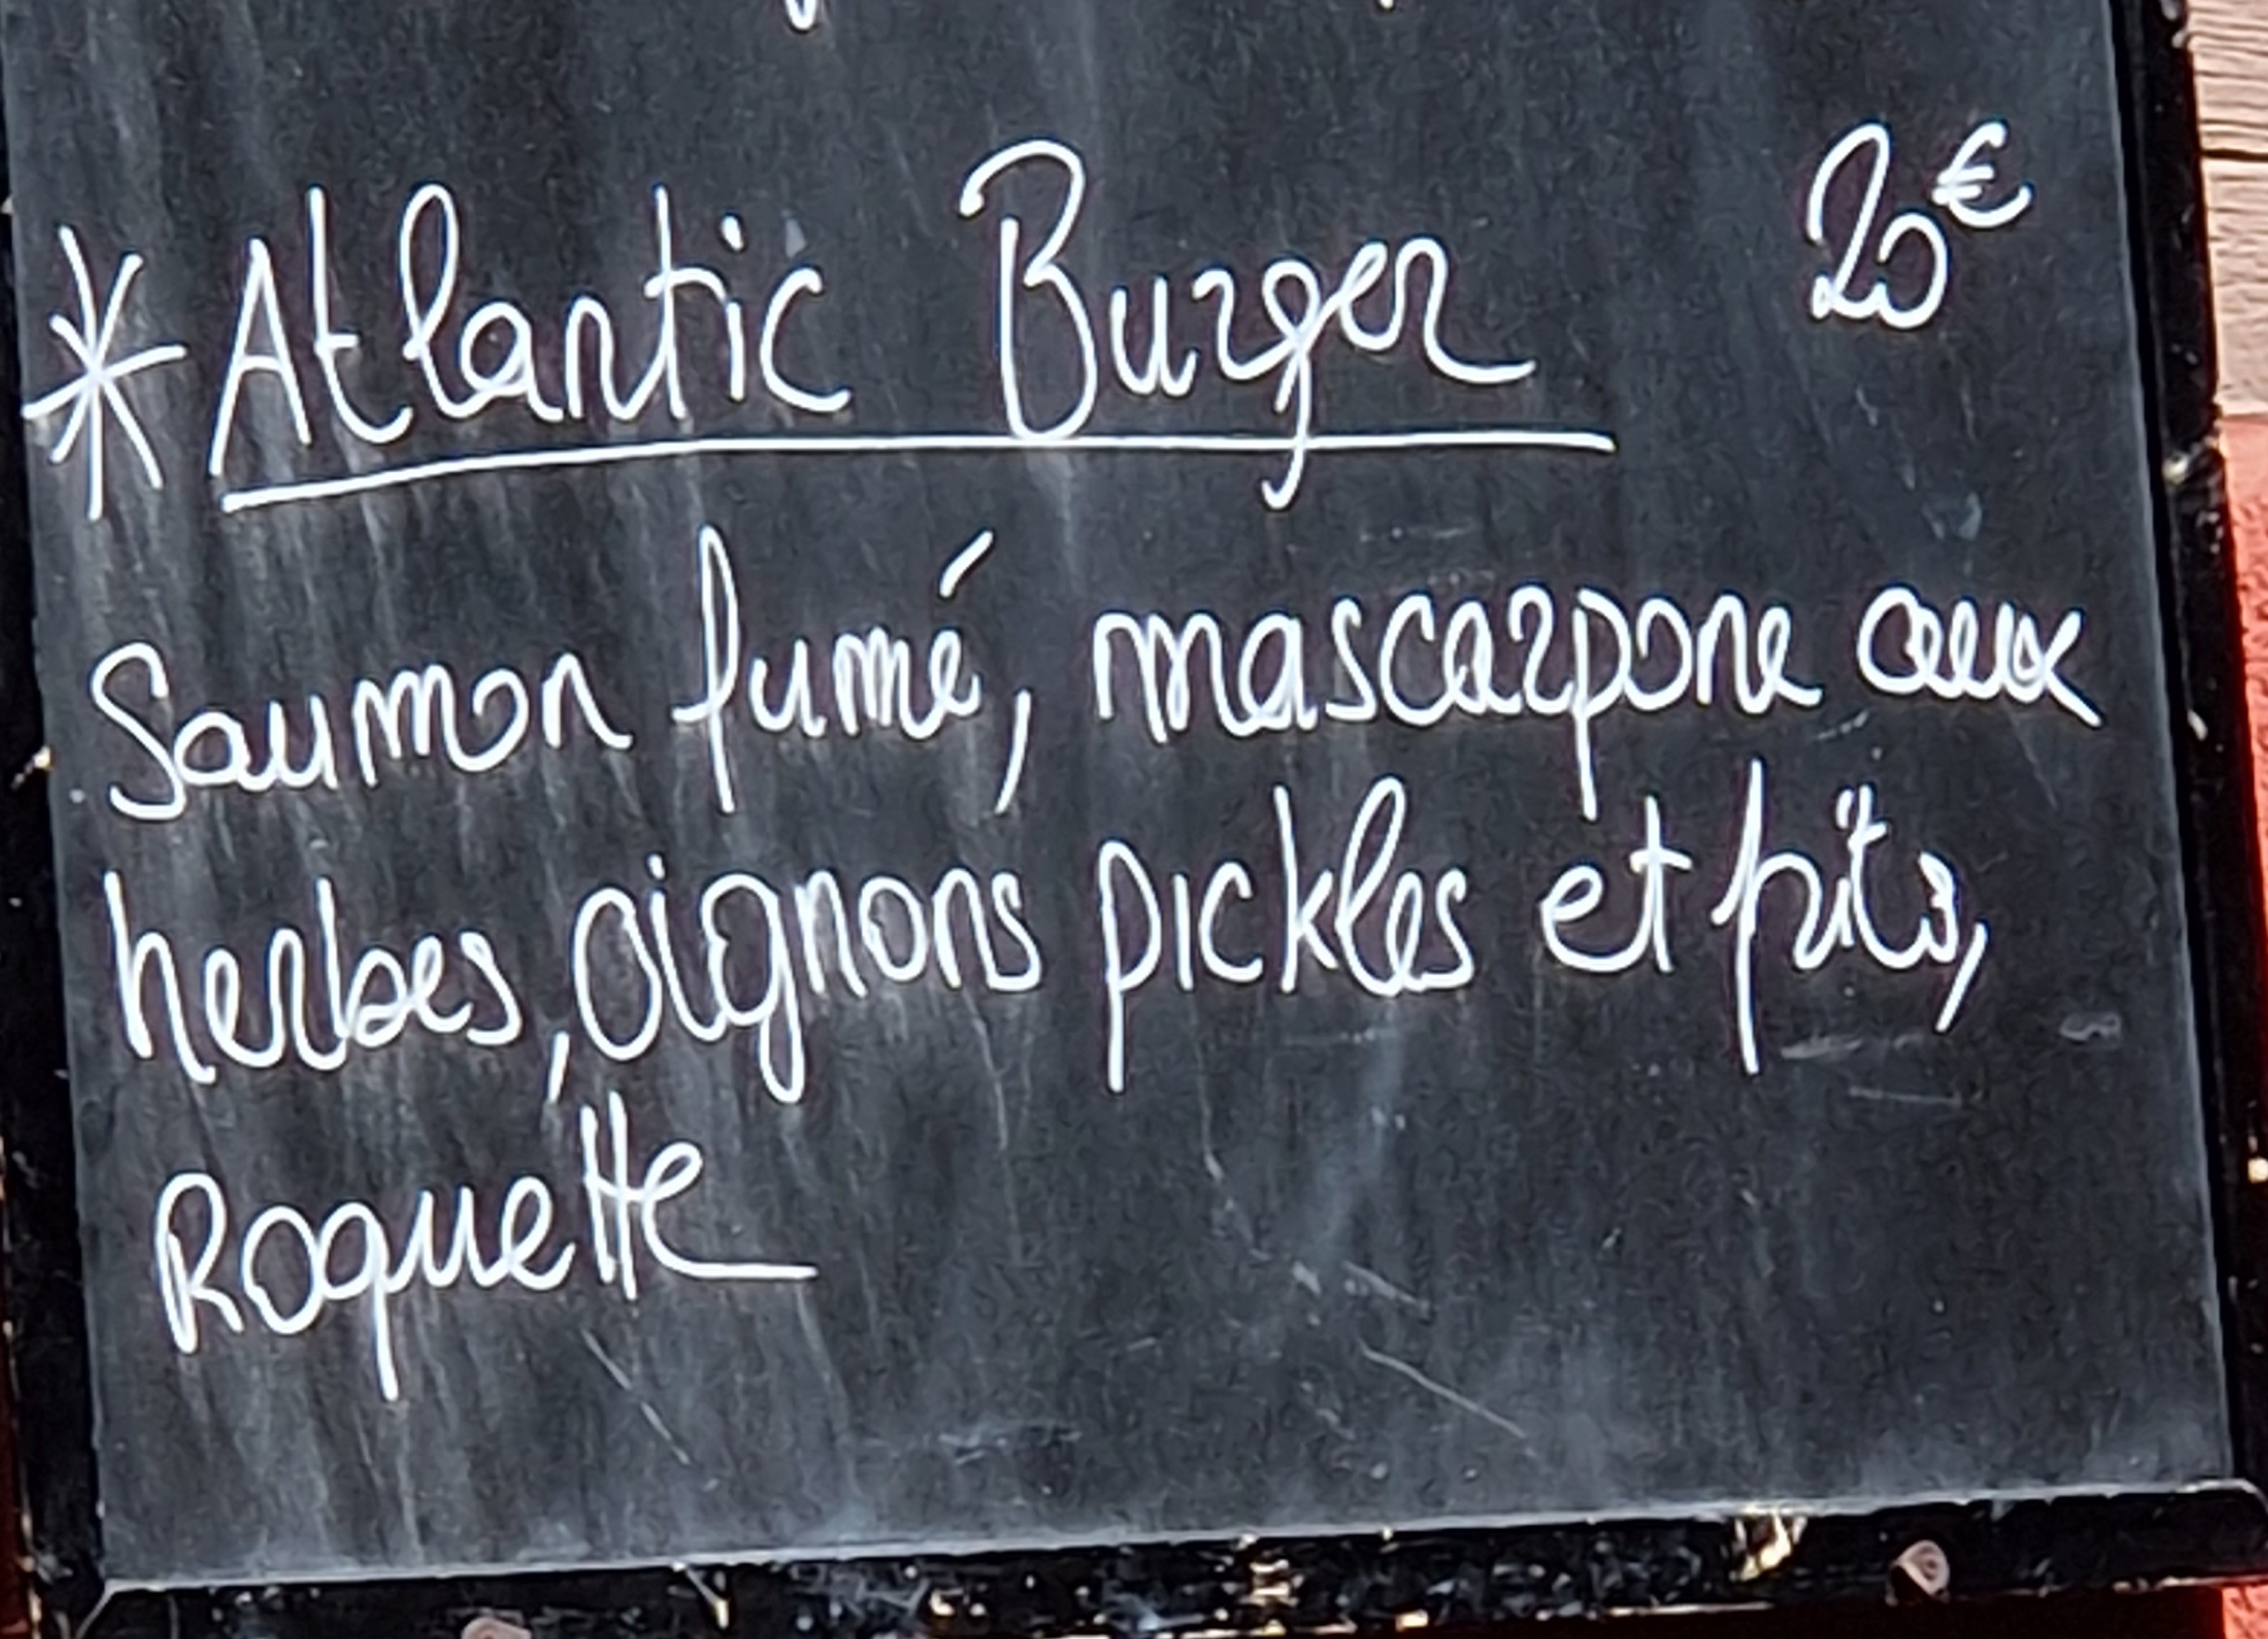 * Atlantic Burger 20€
Saumon fumé, mascarpone aux
herbes, oignons pickles et frits,
Roquette